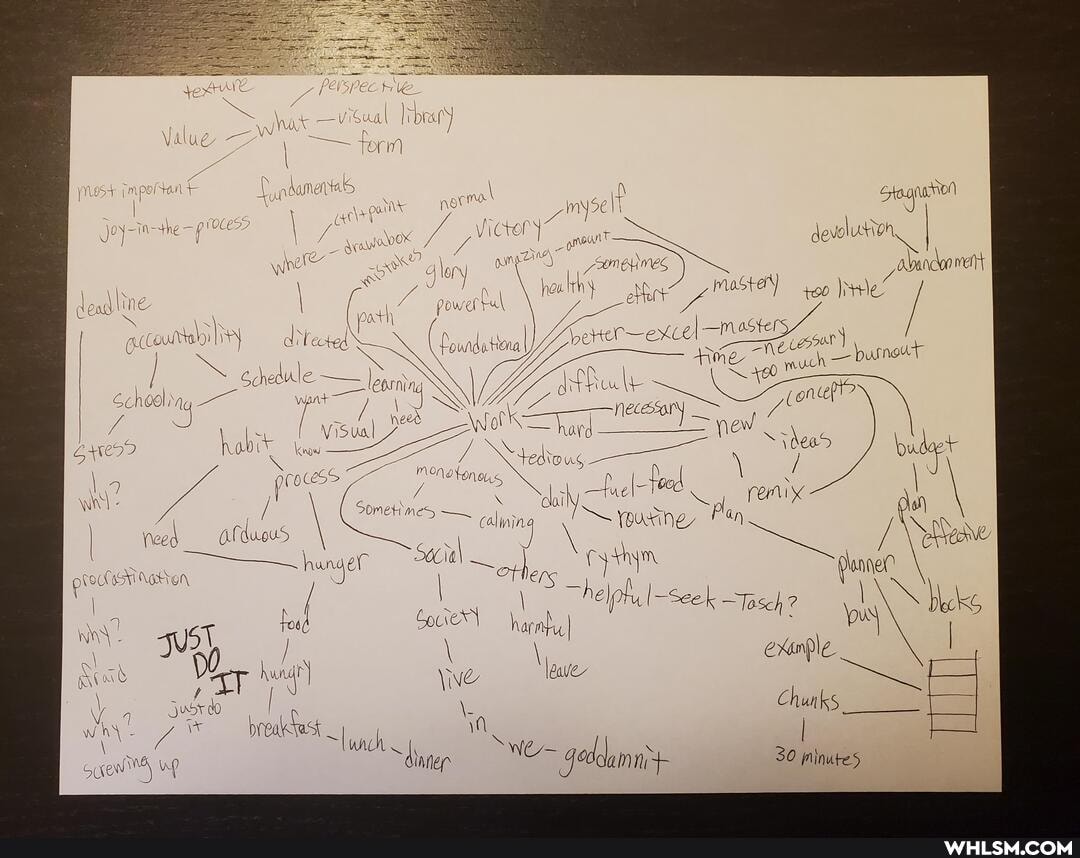 texture
perspective
Value
what
visual library
form
most important
joy-in-the-process
fundamentals
ctrl+paint
where
drawabox
normal
mistakes
Victory
myself
glory
amazing
amount
healthy
sometimes
effort
mastery
path
powerful
foundational
better
excel
masters
Stagnation
devolution
abandonment
too little
time
necessary
too much
burnout
deadline
accountability
directed
Schedule
learning
schooling
want
visual
need
know
Stress
habit
process
Work
difficult
necessary
hard
tedious
new
concepts
ideas
remix
budget
plan
effective
why?
need
arduous
hunger
monotonous
sometimes
calming
daily
fuel-food
routine
rythym
plan
planner
buy
blocks
procrastination
why?
afraid
why?
screwing up
just do
it
JUST
DO
IT
food
hungry
breakfast
lunch
dinner
Social
others
helpful-seek-Tasch?
society
harmful
live
leave
in
we
goddamnit
example
Chunks
30 minutes
WHLSM.COM